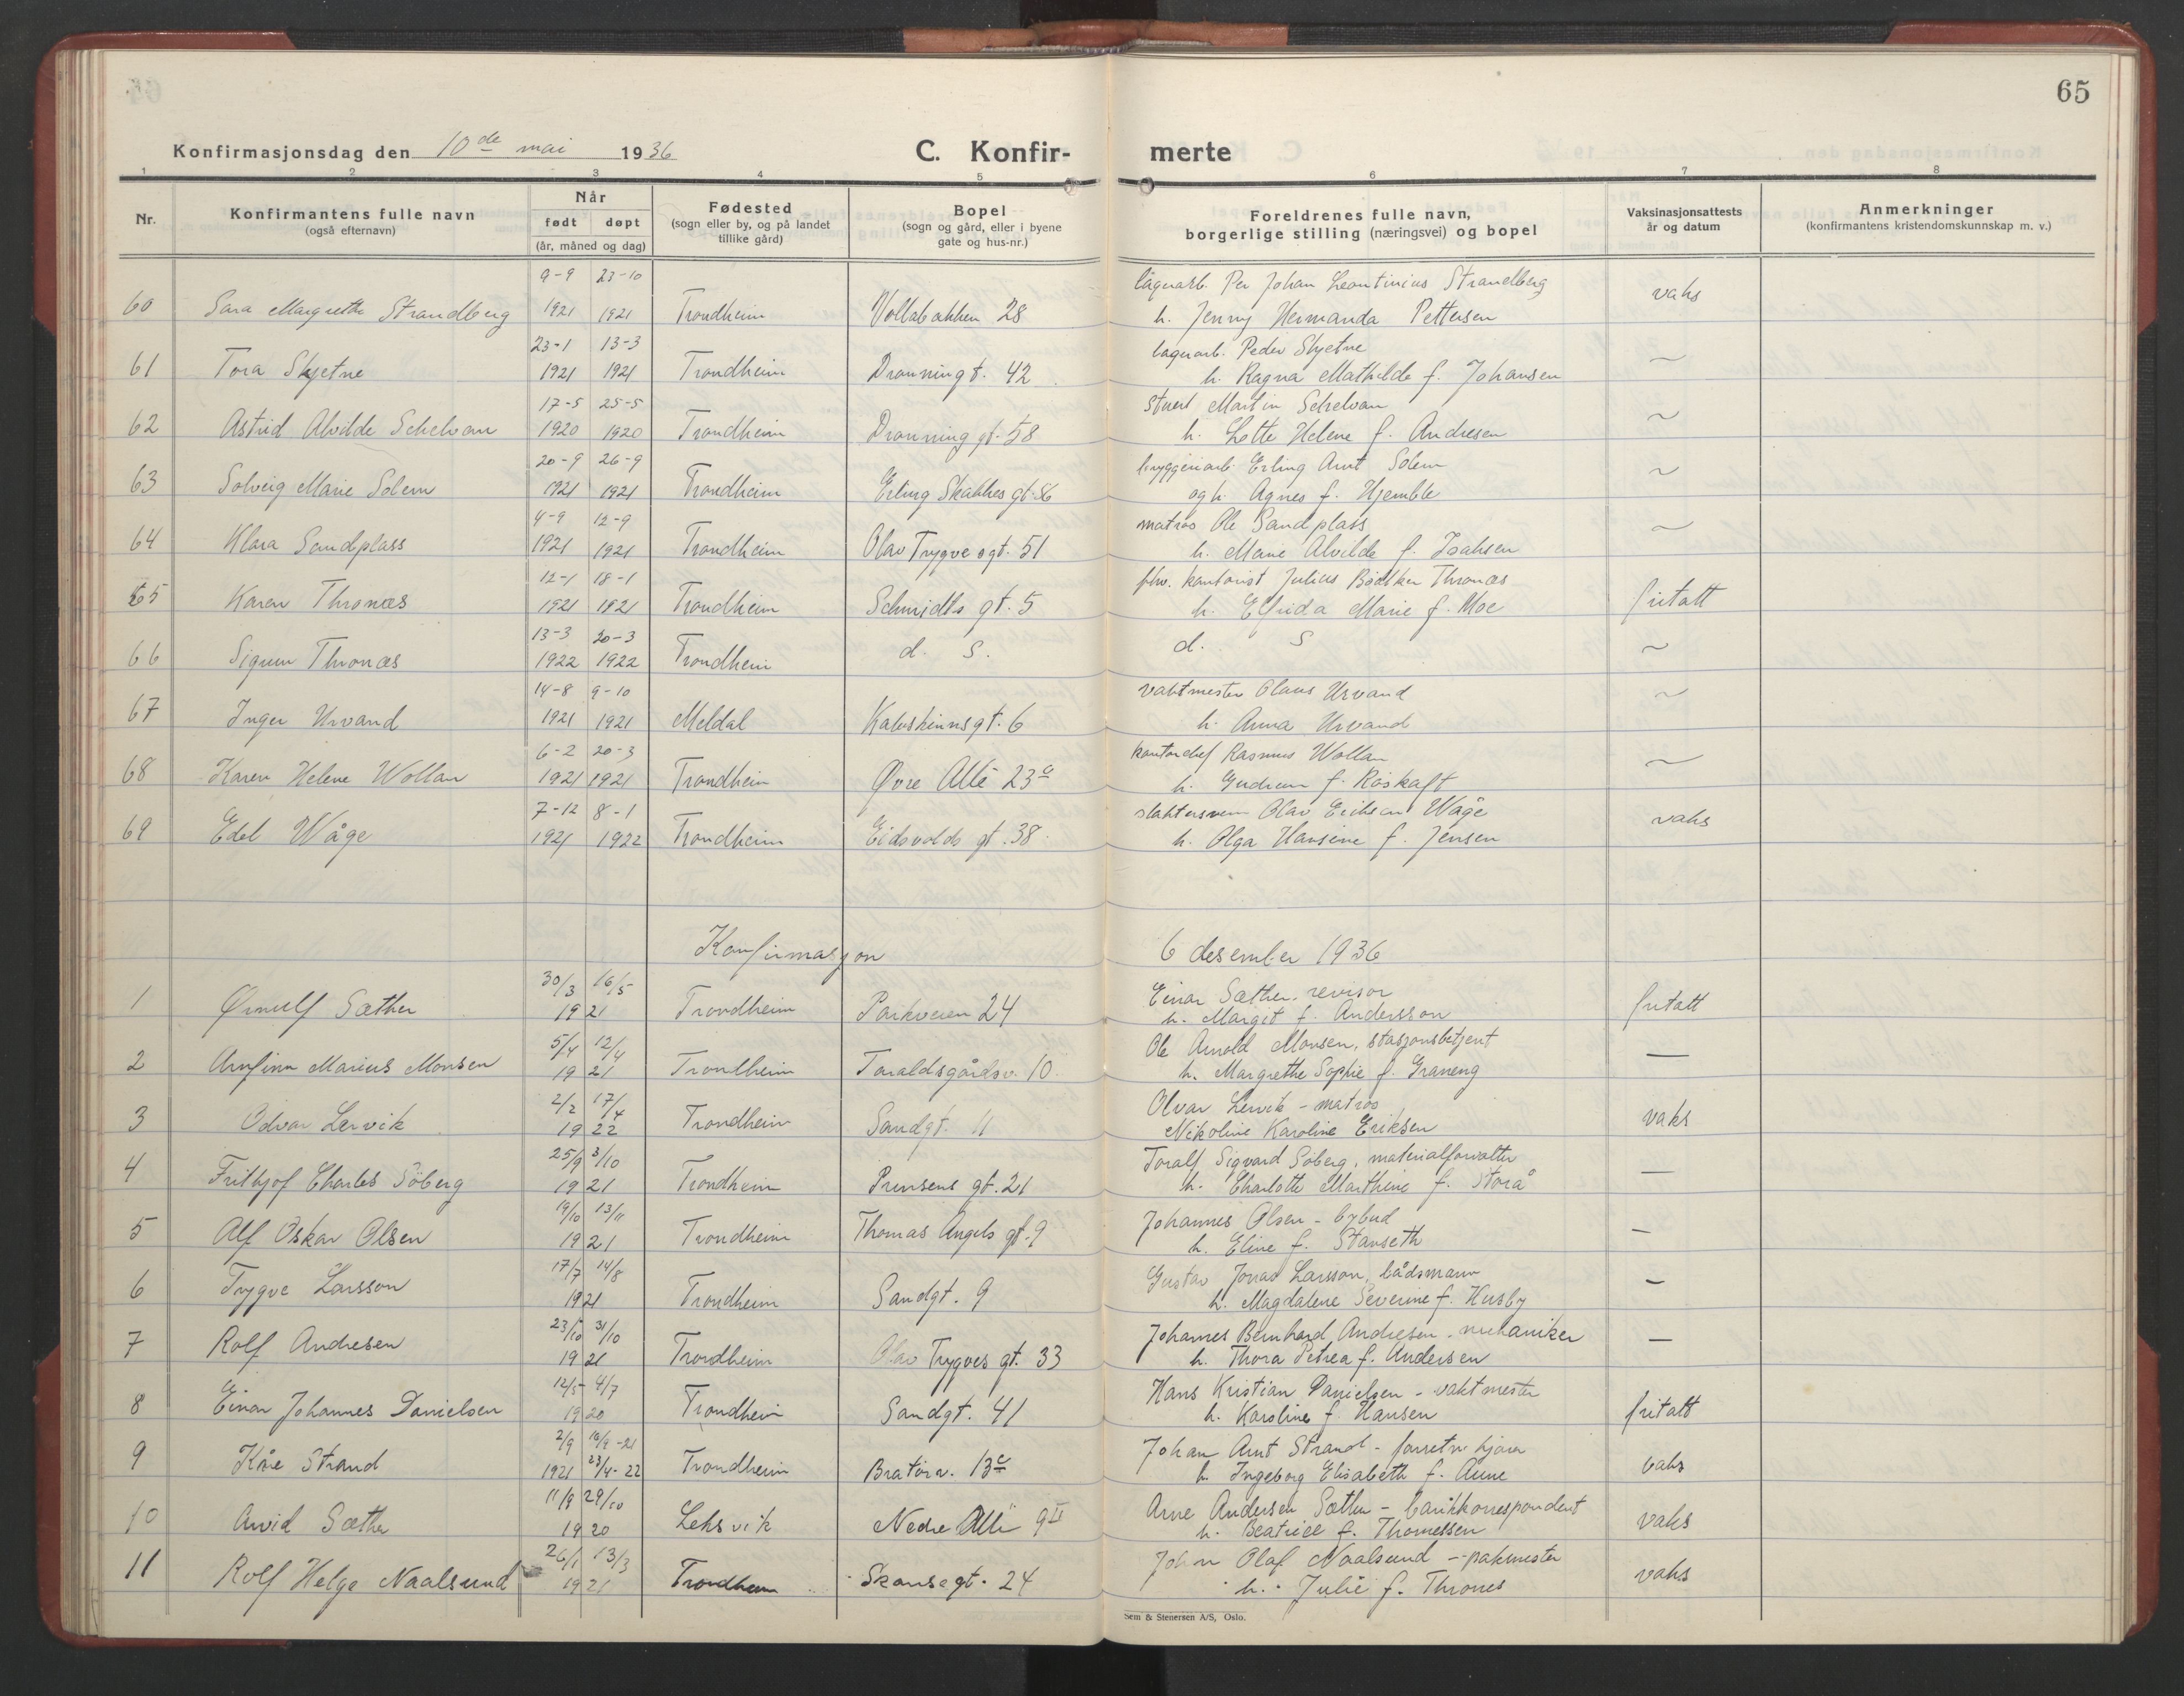 65
Konfirmasjonsdag den 10de mai 1936
C. Konfir- merte
1 2 3 4 5 6 7 8
Nr.
Konfirmantens fulle navn
(også efternavn)
Når
født døpt
(år, måned og dag)
Fødested
(sogn eller by, og på landet
tillike gård)
Bopel
(sogn og gård, eller i byene
gate og hus-nr.)
Foreldrenes fulle navn,
borgerlige stilling (næringsvei) og bopel
Vaksinasjonsattests
år og datum
Anmerkninger
(konfirmantens kristendomskunnskap m. v.)
9-9 23-10 lagerarb. Per Johan Leontinius Strandberg
60 Sara Margrethe Strandberg 1921 1921 Trondheim Vollabakken 28 h. Jenny Hermanda Pettersen vaks
23-1 13-3 lagerarb. Peder Skjetne
61 Tora Skjetne 1921 1921 Trondheim Dronningt. 42 h. Ragna Mathilde f. Johansen ~
17-5 25-5 Stuert Martin Schelvan
62 Astrid Alvilde Schelvan 1920 1920 Trondheim Dronning gt. 58 h. Lotte Helene f. Andresen ~
20-9 26-9 bryggeriarb. Erling Arnt Solem
63 Solveig Marie Solem 1921 1921 Trondheim Erling Skakkes gt. 56 og h. Agnes f. Hjemble ~
4-9 12-9 matros Ole Sandplass
64 Klara Sandplass 1921 1921 Trondheim Olav Trygves gt. 51 h. Marie Alvilde f. Isaksen ~
12-1 18-1 fhv. kontorist Julius Bødtker Thronæs
65 Karen Thronæs 1921 1921 Trondheim Schmidts gt. 5 h. Elfrida Marie f. Moe fritatt
13-3 20-3
66 Sigrun Thronæs 1922 1922 Trondheim d. S. d. S ~
14-8 9-10 vaktmester Olaus Urvand
67 Inger Urvand 1921 1921 Meldal Kalvskinnsgt. 6 h. Anna Urvand ~
6-2 20-3 kontorchef Rasmus Wollan
68 Karen Helene Wollan 1921 1921 Trondheim Øvre Allé 23a h. Gudrun f. Røskaft ~
7-12 8-1 slaktersvenn Olav Eriksen Wåge
69 Edel Wåge 1921 1922 Trondheim Eidsvolds gt. 38 h. Olga Hansine f. Jensen vaks
Konfirmasjon 6 desember 1936
30/3 16/5 Einar Sæther. revisor
1 Ørnulf Sæther 1921 Trondheim Parkveien 24 h. Margit f. Andersson fritatt
5/4 12/4 Ole Arnold Monsen, stasjonsbetjent
2 Arnfinn Marius Monsen 1921 Trondheim Taraldsgårdsv. 10. h. Margrethe Sophie f. Graneng —
2/2 17/4 Olvar Lervik - matros
3 Odvar Lervik 1922 Trondheim Sandgt. 11 Nikoline Karoline Eriksen vaks
25/9 3/10 Toralf Sigvard Søberg, materialforvalter
4 Frithjof Charles Söberg 1921 Trondheim Prinsens gt. 21 h. Charlotte Marthine f. Storå —
19/10 13/11 Johannes Olsen - bybud
5 Alf Oskar Olsen 1921 Trondheim Thomas Angels gt. 9 h. Eline f. Stavseth —
17/7 14/8 Gustav Jonas Larsson, bådsmann
6 Trygve Larsson 1921 Trondheim Sandgt. 9 h. Magdalene Severine f. Husby —
23/10 31/10 Johannes Bernhard Andresen. mekaniker
7 Rolf Andresen 1921 Trondheim Olav Trygves gt. 33 h. Thora Petrea f. Andersen —
12/5 4/7 Hans Kristian Danielsen - vaktmester
8 Einar Johannes Danielsen 1920 Trondheim Sandgt. 41 h. Karoline f. Hansen fritatt
2/9 -21 Johan Arnt Strand -
9 Kåre Strand 1921 23/4-22 Trondheim Bratørv. 13c h. Ingeborg Elisabeth f. Aune vaks
11/9 29/10 Arne Andersen Sæther - bankkorrespondent
10 Arvid Sæther 1920 Leksvik Nedre Allé 9II h. Beatrice f. Thomessen vaks
26/1 13/3 John Olaf Naalsund - pakmester
11 Rolf Helge Naalsund 1921 Trondheim Skansegt. 24 h. Julie f. Thrones vaks
Sem & Stenersen A/S, Oslo.